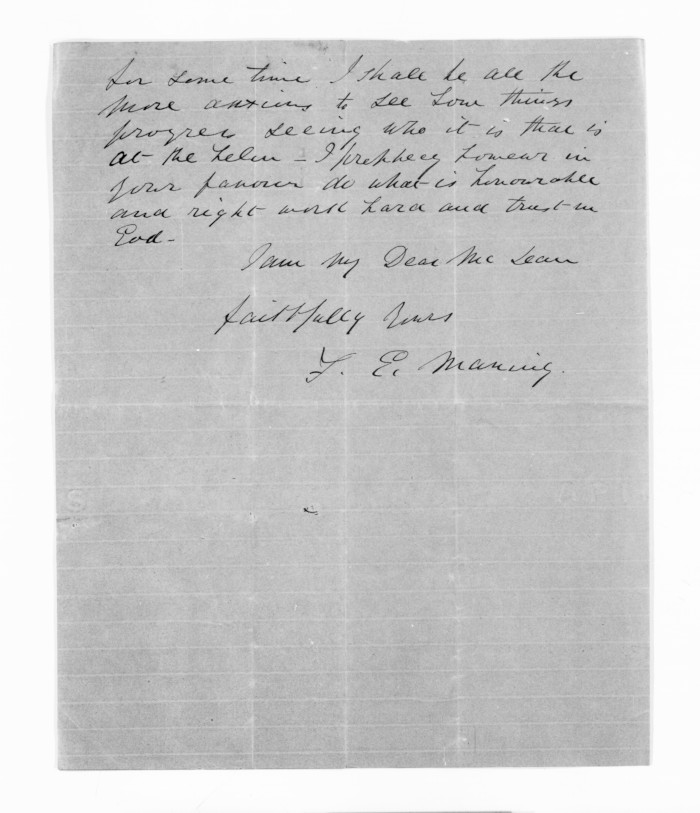 for some time I shall be all the
more anxious to see how things
progress seeing who it is that is
at the helm - I prophecy however in
your favour do what is honourable
and right work hard and trust in
God -
I am My Dear Mc Lean
faithfully Yours
F. E. Maning.